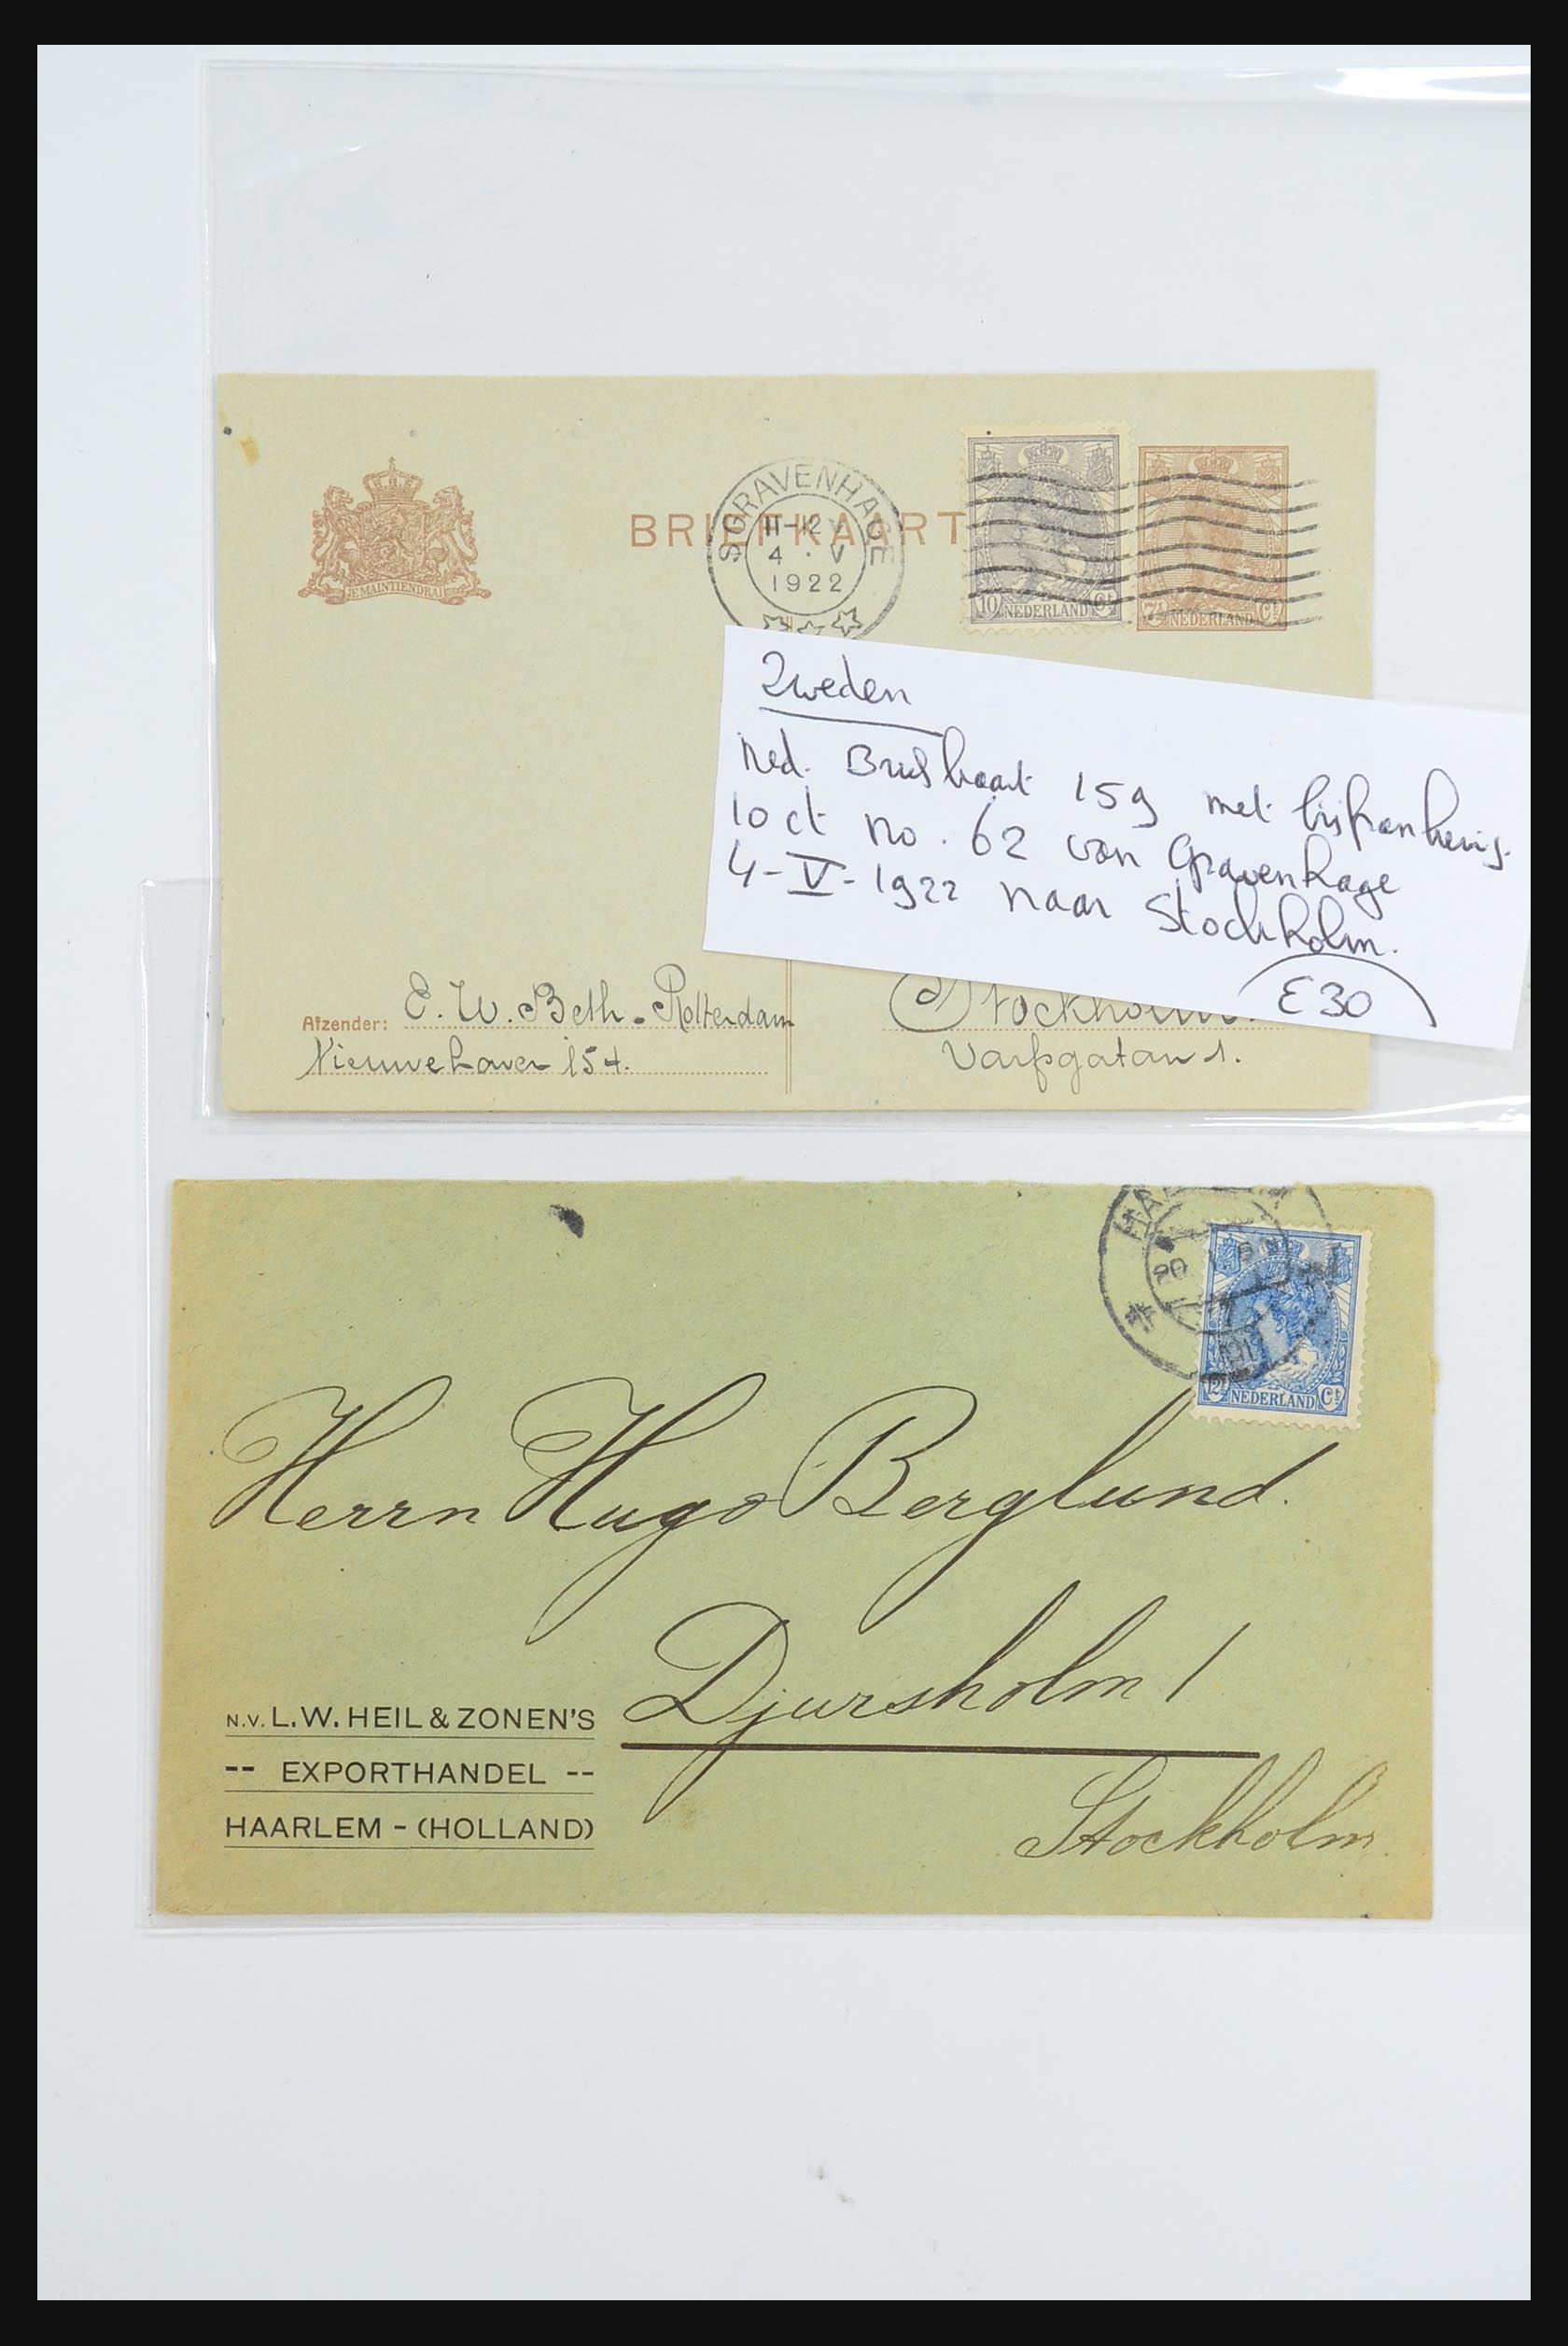 'SGRAVENHAGE
11-12 V
4 · V
1922
BRIEFKAART
JE MAINTIENDRAI
10 NEDERLAND Ct
7½ NEDERLAND Ct
Zweden
Ned. Briefkaart 159 met bijfrankering
10 ct no. 62 van Gravenhage
4-V-1922 naar Stockholm.
€30
Afzender: E. W. Beth - Rotterdam
Nieuwehaven 154.
Stockholm.
Varfsgatan 1.
12½ NEDERLAND Ct
Herrn Hugo Berglund.
Djursholm 1
Stockholm
N.V. L.W. HEIL & ZONEN'S
-- EXPORTHANDEL --
HAARLEM - (HOLLAND)